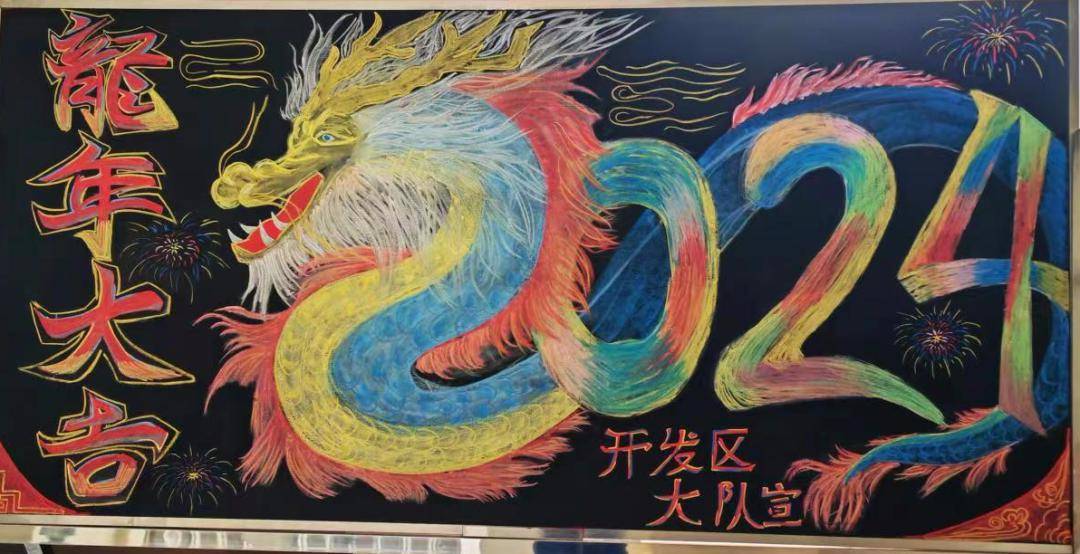 龍年大吉
2024
开发区
大队宣